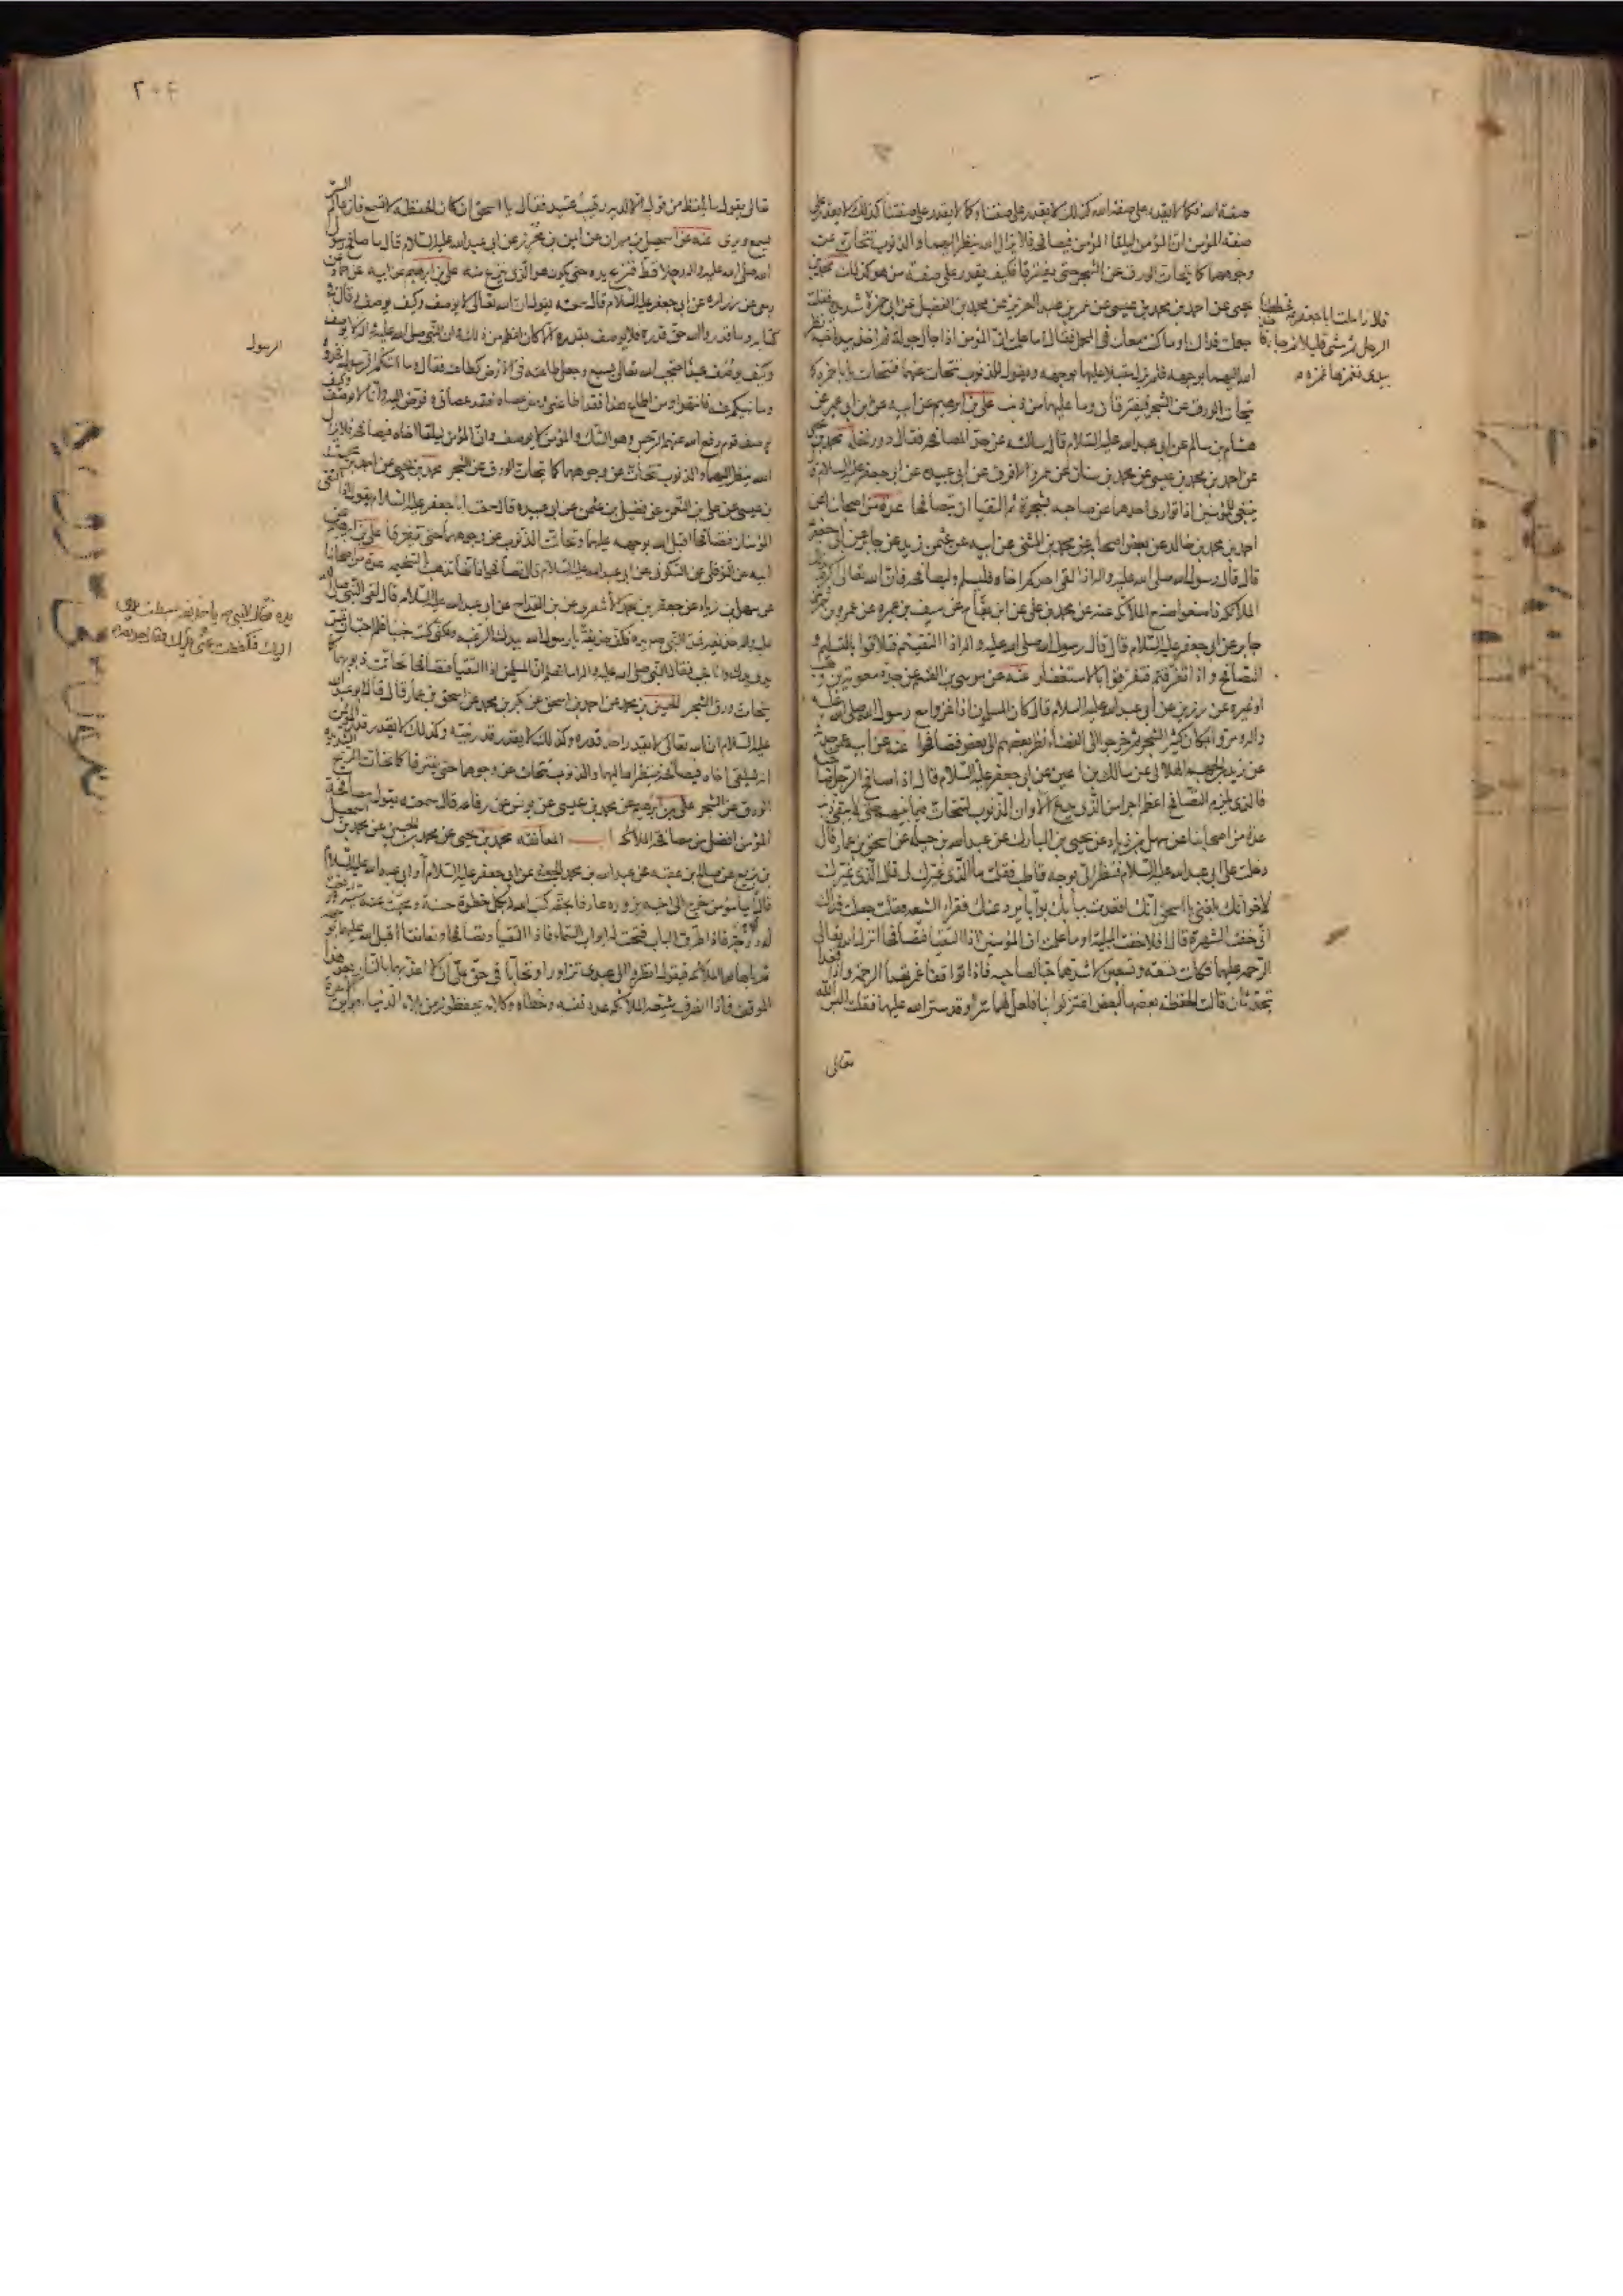 صفة الله فكما لا يقدر على صفة الله كذلك لا يقدر على صفتنا وكما لا يقدر على صفتنا كذلك لا يقدر على
صفة المؤمن ان المؤمن ليلقا المؤمن فيصافحه فلا يزال الله ينظر اليهما والذنوب تتحات عن
وجوههما كما يتحات الورق عن الشجر حتى يفترقا فكيف يقدر على صفة من هو كذلك محمد بن
يحيى عن احمد بن محمد بن عيسى عن عمر بن عبد العزيز عن محمد بن الفضيل عن ابي حمزة
جعلت فداك او ما كنت معك في المحمل فقال اما علمت ان المؤمن اذا جال جولة ثم اخذ بيد اخيه نظر
الله اليهما بوجهه فلم يزل مقبلا عليهما بوجهه ويقول للذنوب تتحات عنهما فتتحات يا با حمزة كما
يتحات الورق عن الشجر فيفترقان وما عليهما من ذنب علي بن ابرهيم عن ابيه عن ابن ابي عمير عن
هشام بن سالم عن ابي عبد الله عليه السلام قال سالته عن حد المصافحة فقال دور نخلة محمد بن يحيى
عن احمد بن محمد بن عيسى عن محمد بن سنان عن عمرو الافرق عن ابي عبيدة عن ابي جعفر عليه السلام قال
ينبغي للمؤمنين اذا توارى احدهما عن صاحبه بشجرة ثم التقيا ان يتصافحا عدة من اصحابنا عن
احمد بن محمد بن خالد عن بعض اصحابه عن محمد بن المثنى عن ابيه عن عثمن بن زيد عن جابر عن ابي جعفر
قال قال رسول الله صلى الله عليه واله اذا لقى احدكم اخاه فليسلم وليصافحه فان الله تعالى اكرم بذلك
الملائكة فاصنعوا صنع الملائكة عنه عن محمد بن علي عن ابن بقاح عن سيف بن عميرة عن عمرو بن شمر عن
جابر عن ابي جعفر عليه السلام قال قال رسول الله صلى الله عليه واله اذا التقيتم فتلاقوا بالتسليم و
التصافح واذا تفرقتم فتفرقوا بالاستغفار عنه عن موسى بن القسم عن جده معوية بن وهب
او غيره عن رزين عن ابي عبد الله عليه السلام قال كان المسلمون اذا غزوا مع رسول الله صلى الله عليه
واله ومروا بمكان كثير الشجر ثم خرجوا الى الفضاء نظر بعضهم الى بعض فتصافحوا عنه عن ابيه عمن حدثه
عن زيد بن الجهم الهلالي عن مالك بن اعين عن ابي جعفر عليه السلام قال اذا صافح الرجل صاحبه
فالذي يلزم التصافح اعظم اجرا من الذي يدع الا وان الذنوب لتتحات فيما بينهم حتى لا يبقى ذنب
عدة من اصحابنا عن سهل بن زياد عن يحيى بن المبارك عن عبد الله بن جبلة عن اسحق بن عمار قال
دخلت على ابي عبد الله عليه السلام فنظر الي بوجه قاطب فقلت ما الذي غيرك لي قال الذي غيرك
لاخوانك بلغني يا اسحق انك اقعدت ببابك بوابا يرد عنك فقراء الشيعة فقلت جعلت فداك
اني خفت الشهرة قال افلا خفت البلية او ما علمت ان المؤمنين اذا التقيا فتصافحا انزل الله تعالى
الرحمة عليهما فكانت تسعة وتسعين لاشدهما حبا لصاحبه فاذا توافقا غمرتهما الرحمة واذا قعدا
يتحدثان قالت الحفظة بعضها لبعض اعتزلوا بنا فلعل لهما سرا وقد ستر الله عليهما فقلت اليس الله
تعالى
بيدي فغمزها غمزة
٢٠٤
تعالى يقول ما يلفظ من قول الا لديه رقيب عتيد فقال يا اسحق ان كان الحفظة لا تسمع فان عالم السر
يسمع ويرى عنه عن اسمعيل بن مهران عن ايمن بن محرز عن ابي عبد الله عليه السلام قال ما صافح رسول
الله صلى الله عليه واله رجلا قط فنزع يده حتى يكون هو الذي ينزع منه علي بن ابرهيم عن ابيه عن حماد عن
ربعي عن زرارة عن ابي جعفر عليه السلام قال سمعته يقول ان الله تعالى لا يوصف وكيف يوصف وقال في
كتابه وما قدروا الله حق قدره فلا يوصف بقدر الا كان اعظم من ذلك وان النبي صلى الله عليه واله لا يوصف
وكيف يوصف عبد احتجب الله تعالى بسبع وجعل طاعته في الارض كطاعته فقال وما اتيكم الرسول فخذوه
وما نهيكم عنه فانتهوا ومن اطاع هذا فقد اطاعني ومن عصاه فقد عصاني وفوض اليه وانا لا نوصف وكيف
يوصف قوم رفع الله عنهم الرجس وهو الشك والمؤمن لا يوصف وان المؤمن ليلقا اخاه فيصافحه فلا يزال
الله ينظر اليهما والذنوب تتحات عن وجوههما كما يتحات الورق عن الشجر محمد بن يحيى عن احمد بن محمد
بن عيسى عن علي بن النعمن عن فضيل بن عثمن عن ابي عبيدة قال سمعت ابا جعفر عليه السلام يقول اذا التقى
المؤمنان فتصافحا اقبل الله بوجهه عليهما وتتحات الذنوب عن وجوههما حتى يفترقا علي بن ابرهيم عن
ابيه عن النوفلي عن السكوني عن ابي عبد الله عليه السلام قال تصافحوا فانها تذهب بالسخيمة عدة من اصحابنا
عن سهل بن زياد عن جعفر بن محمد الاشعري عن ابن القداح عن ابي عبد الله عليه السلام قال لقى النبي صلى الله
يتحات ورق الشجر الحسين بن محمد عن احمد بن اسحق عن بكر بن محمد عن اسحق بن عمار قال قال ابو عبد الله
عليه السلام ان الله تعالى لا يقدر احد قدره وكذلك لا يقدر قدر نبيه وكذلك لا يقدر قدر المؤمن
انه ليلقى اخاه فيصافحه فينظر الله اليهما والذنوب تتحات عن وجوههما حتى يفترقا كما تتحات الريح الشديدة
الورق عن الشجر علي بن ابرهيم عن محمد بن عيسى عن يونس عن رفاعة قال سمعته يقول مصافحة
المؤمن افضل من مصافحة الملائكة باب المعانقة محمد بن يحيى عن محمد بن الحسين عن محمد بن اسمعيل
بن بزيع عن صالح بن عقبة عن عبد الله بن محمد الجعفي عن ابي جعفر عليه السلام او ابي عبد الله عليه السلام
قال ايما مؤمن خرج الى اخيه يزوره عارفا بحقه كتب الله له بكل خطوة حسنة ومحيت عنه سيئة ورفعت
له درجة فاذا طرق الباب فتحت له ابواب السماء فاذا التقيا وتصافحا وتعانقا اقبل الله عليهما بوجهه
ثم باهى بهما الملائكة فيقول انظروا الى عبدي تزاورا وتحابا في حق علي ان لا اعذبهما بالنار بعد هذا
الموقف فاذا انصرف شيعه الملائكة عدد نفسه وخطاه وكلامه يحفظونه من بلاء الدنيا وبوايق الاخرة
الرسول